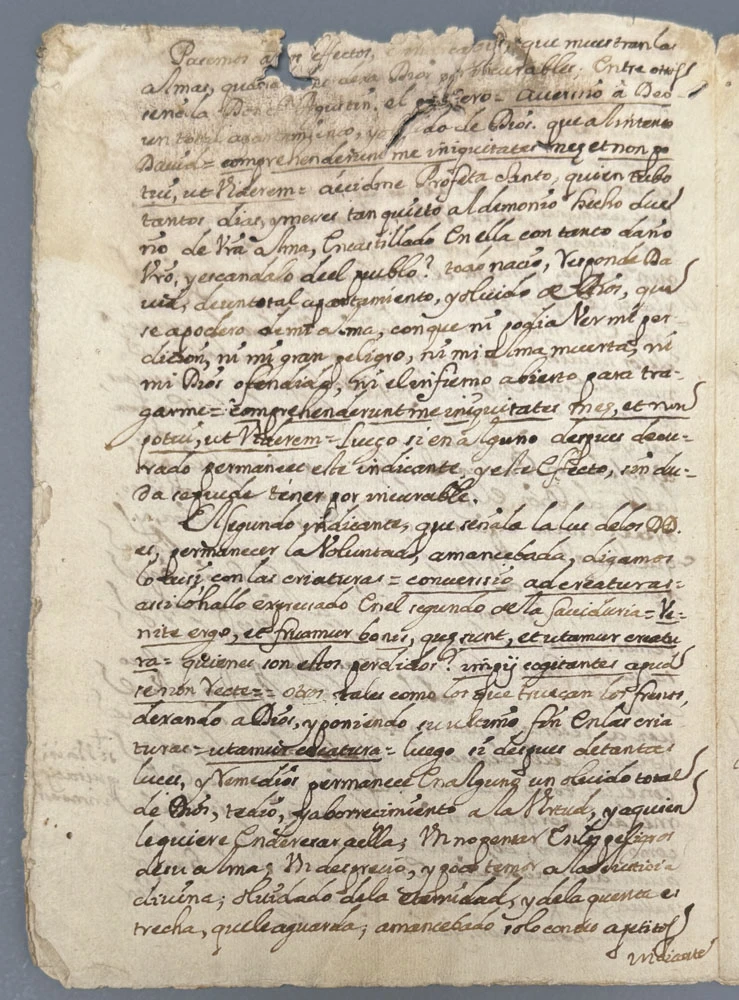 Pasemos a los effectos, que muestran las
almas, para Dios incurables; Entre otros
señala Agustin. el primero = aversio à Deo =
un total apartamiento, y olvido de Dios. que al intento
David = comprehenderunt me iniquitates meę et non po
tui, ut Viderem = decidme Profeta Santo, quien tubo
tantos dias, y meses tan quieto al demonio hecho due
ño de Vra alma, Encastillado En ella con tanto daño
Vro, y escandalo de el pueblo? todo nacio, Responde Da
vid, de un total apartamiento, y olvido de Dios, que
se apodero de mi alma, con que ni podia Ver mi per-
dicion, ni mi gran peligro, ni mi alma muerta, ni
mi Dios ofendido, ni el infierno abierto para tra-
garme = comprehenderunt me iniquitates meę, et non
potui, ut Viderem = Luego si en alguno despues de cu-
rado permanece este indicante, y este Efecto, sin du-
da se puede tener por incurable.
El segundo indicante, que señala la luz de los DD.
es, permanecer la Voluntad, amancebada, digamos
lo assi, con las criaturas = conversio ad creaturas =
assi lo hallo expressado En el segundo de la Saviduria = Ve-
nite ergo, et fruamur bonis, quę sunt, et utamur creatu
ra = quienes son estos perdidos? impij cogitantes apud
se non recte = otros tales como los que truecan los frenos,
dexando a Dios, y poniendo su ultimo fin En las cria
turas = utamur creatura = luego si despues de tantas
luces, y Remedios permanece En alguno un olvido total
de Dios, tedio, y aborrecimiento a la Virtud, y a quien
le quiere Enderesar a ella; Un no pensar En los peligros
de su alma; Un desprecio, y poco temor a la Justicia
divina; olvidado de la eternidad, y de la quenta es
trecha, que le aguarda; amancebado solo con sus apetitos
indicante